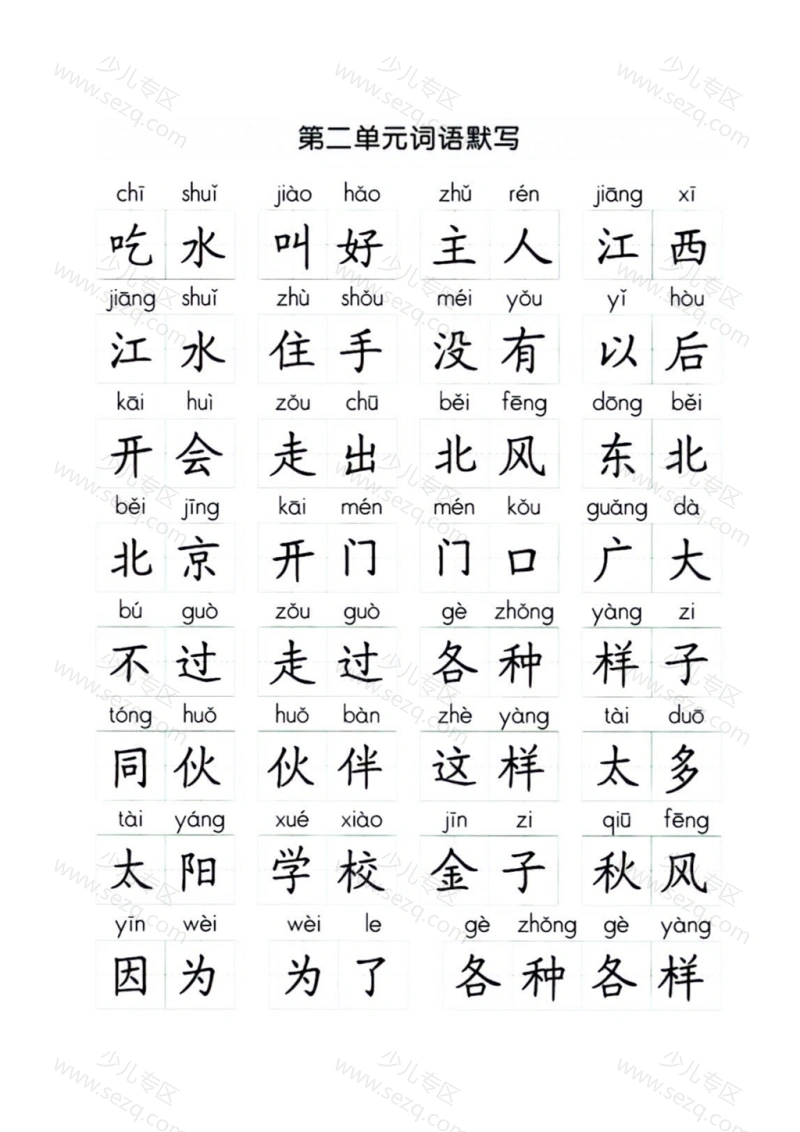 第二单元词语默写
chī shuǐ jiào hǎo zhǔ rén jiāng xī
吃水 叫好 主人 江西
jiāng shuǐ zhù shǒu méi yǒu yǐ hòu
江水 住手 没有 以后
kāi huì zǒu chū běi fēng dōng běi
开会 走出 北风 东北
běi jīng kāi mén mén kǒu guǎng dà
北京 开门 门口 广大
bú guò zǒu guò gè zhǒng yàng zi
不过 走过 各种 样子
tóng huǒ huǒ bàn zhè yàng tài duō
同伙 伙伴 这样 太多
tài yáng xué xiào jīn zi qiū fēng
太阳 学校 金子 秋风
yīn wèi wèi le gè zhǒng gè yàng
因为 为了 各种各样
少儿专区
www.sezq.com